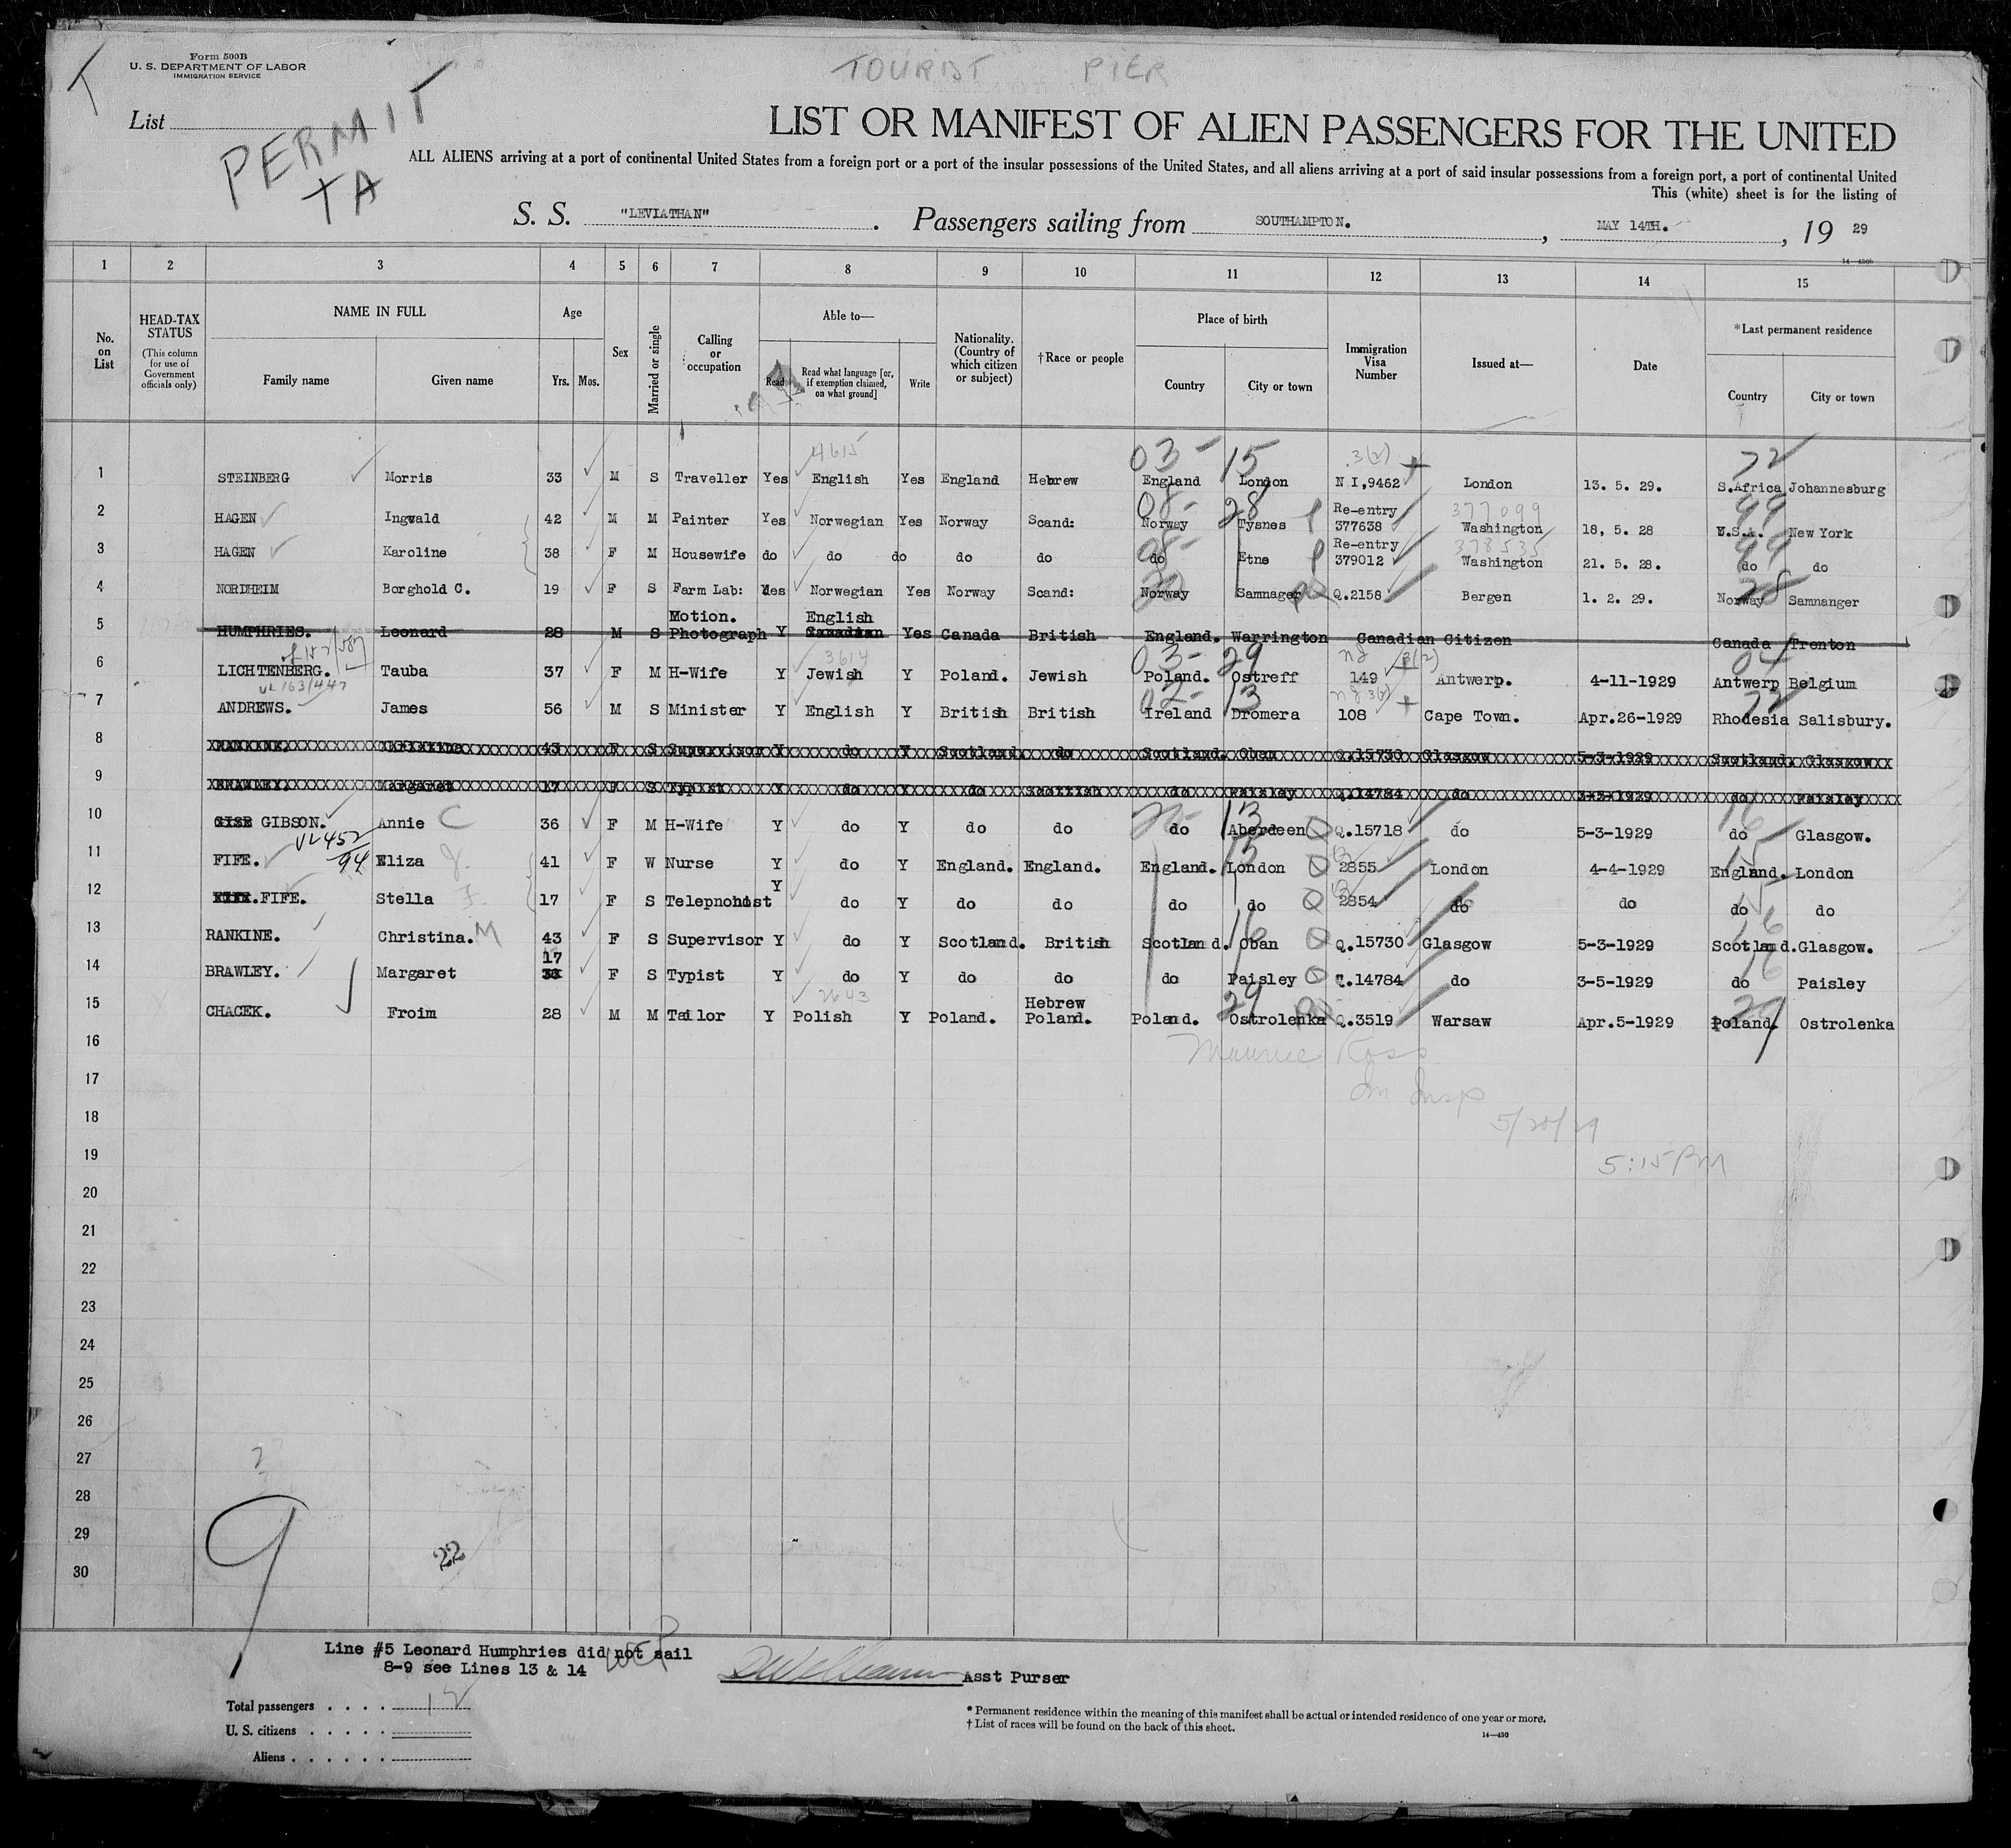 Form 500B
U. S. DEPARTMENT OF LABOR
IMMIGRATION SERVICE
TOURIST PIER
List
PERMIT
TA
LIST OR MANIFEST OF ALIEN PASSENGERS FOR THE UNITED
ALL ALIENS arriving at a port of continental United States from a foreign port or a port of the insular possessions of the United States, and all aliens arriving at a port of said insular possessions from a foreign port, a port of continental United
This (white) sheet is for the listing of
S. S. "LEVIATHAN". Passengers sailing from SOUTHAMPTON. , MAY 14TH. , 19 29
14-430b
1 2 3 4 5 6 7 8 9 10 11 12 13 14 15
No. on List
HEAD-TAX STATUS (This column for use of Government officials only)
NAME IN FULL Family name Given name
Age Yrs. Mos.
Sex
Married or single
Calling or occupation
Able to— Read Read what language [or, if exemption claimed, on what ground] Write
Nationality. (Country of which citizen or subject)
†Race or people
Place of birth Country City or town
Immigration Visa Number
Issued at—
Date
*Last permanent residence Country City or town
4615 03- 15 3(2) 72
1 STEINBERG Morris 33 M S Traveller Yes English Yes England Hebrew England London N I,9462 London 13. 5. 29. S.Africa Johannesburg
08- 28 377099 99
2 HAGEN Ingvald 42 M M Painter Yes Norwegian Yes Norway Scand: Norway Tysnes Re-entry 377638 Washington 18, 5. 28 U.S.A. New York
08- 378535 99
3 HAGEN Karoline 38 F M Housewife do do do do do do Etne Re-entry 379012 Washington 21. 5. 28. do do
28
4 NORDHEIM Borghold C. 19 F S Farm Lab: Yes Norwegian Yes Norway Scand: Norway Samnager Q.2158 Bergen 1. 2. 29. Norway Samnanger
5 HUMPHRIES. Leonard 28 M S Motion. Photograph Y English Canadian Yes Canada British England. Warrington Canadian Citizen Canada Trenton
3614 03- 29 3(2) 24
6 LICHTENBERG. Tauba 37 F M H-Wife Y Jewish Y Poland. Jewish Poland. Ostreff 149 Antwerp. 4-11-1929 Antwerp Belgium
VL 163/447 02- 13 72
7 ANDREWS. James 56 M S Minister Y English Y British British Ireland Dromera 108 Cape Town. Apr.26-1929 Rhodesia Salisbury.
8 RANKINE. Christina 43 F S Supervisor Y do Y Scotland. do Scotland. Oban Q.15730 Glasgow 5-3-1929 Scotland. Glasgow
9 BRAWLEY. Margaret 17 F S Typist Y do Y do Scottish do Paisley Q.14784 do 3-3-1929 do Paisley
13 16
10 GIBSON. Annie C 36 F M H-Wife Y do Y do do do Aberdeen Q.15718 do 5-3-1929 do Glasgow.
VL 452/94 15
11 FIFE. Eliza 41 F W Nurse Y do Y England. England. England. London 2855 London 4-4-1929 England. London
12 FIFE. Stella 17 F S Telephonist Y do Y do do do do 2854 do do do do
16
13 RANKINE. Christina. M 43 F S Supervisor Y do Y Scotland. British Scotland. Oban Q.15730 Glasgow 5-3-1929 Scotland. Glasgow.
16
14 BRAWLEY. Margaret 17 F S Typist Y do Y do do do Paisley Q.14784 do 3-5-1929 do Paisley
2643 29 29
15 CHACEK. Froim 28 M M Tailor Y Polish Y Poland. Hebrew Poland. Poland. Ostrolenka Q.3519 Warsaw Apr.5-1929 Poland. Ostrolenka
16
Maurice Koss
17
Im Insp
18
5/20/29
19
5:15 PM
20
21
22
23
24
25
26
27
28
29
30
9
22
Line #5 Leonard Humphries did not sail
8-9 see Lines 13 & 14
Asst Purser
Total passengers . . . . 12
U. S. citizens . . . . .
Aliens . . . . . .
* Permanent residence within the meaning of this manifest shall be actual or intended residence of one year or more.
† List of races will be found on the back of this sheet.
14—430